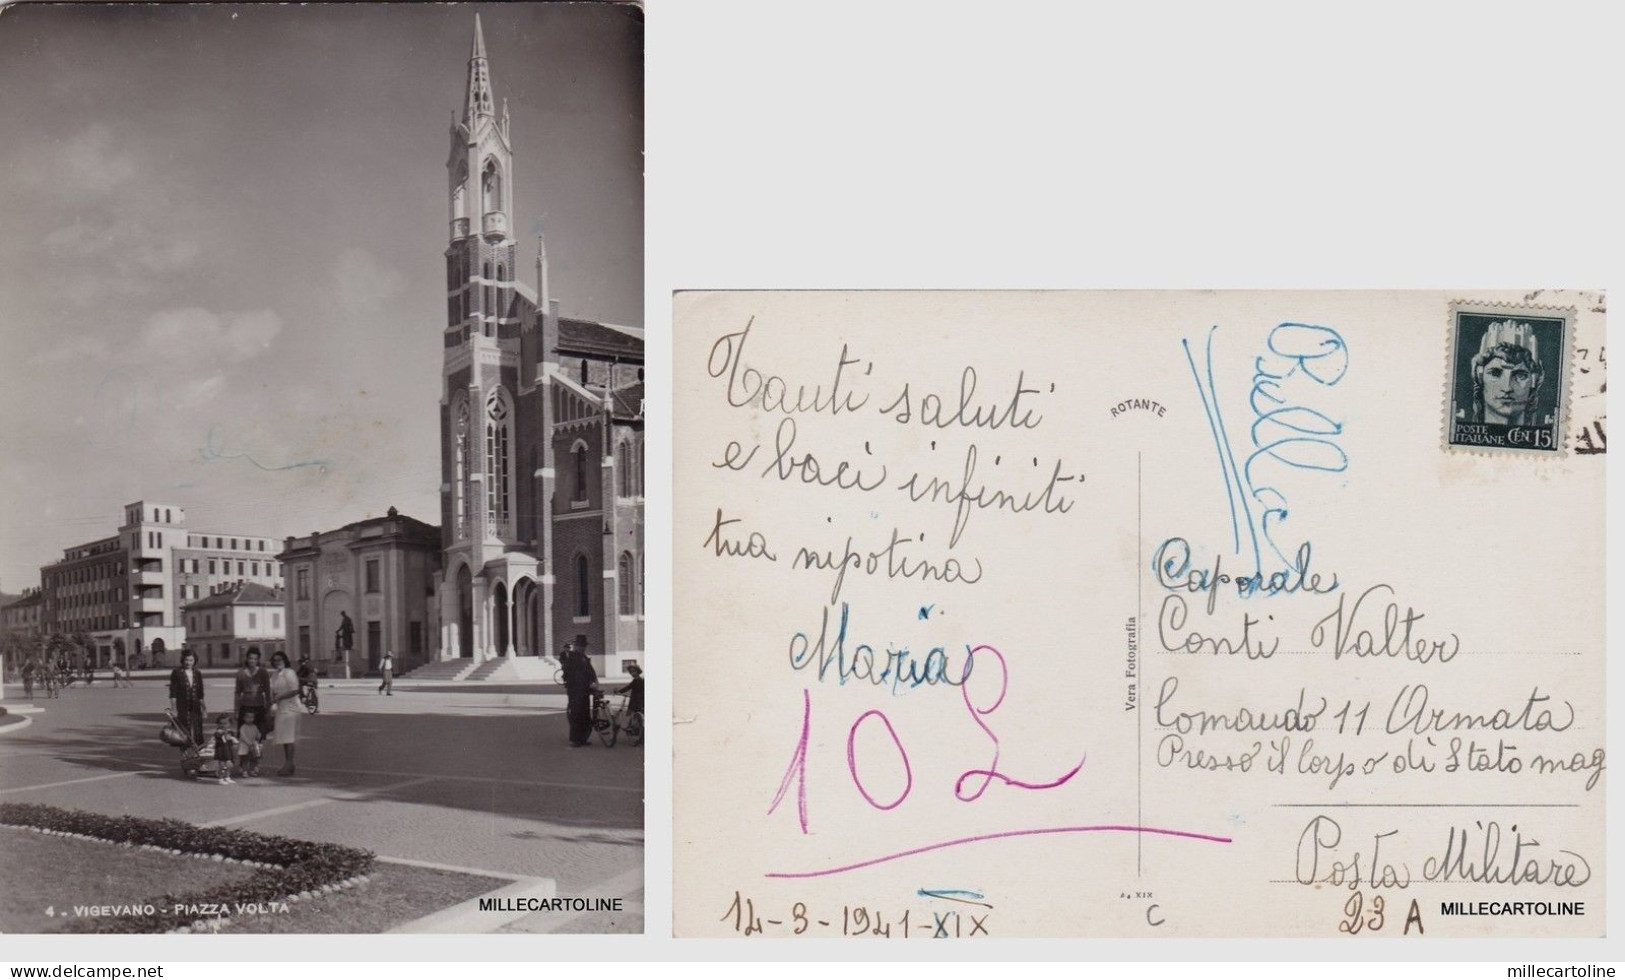 4 - VIGEVANO - PIAZZA VOLTA
MILLECARTOLINE
Tanti saluti
e baci infiniti
tua nipotina
Maria
10 L
14-3-1941-XIX
ROTANTE
Vera Fotografia
A. XIX
C
POSTE
ITALIANE CEN 15
Caporale
Conti Valter
Comando 11 Armata
Presso il Corpo di Stato mag
Posta Militare
23 A
MILLECARTOLINE
delcampe.net
millecartoline